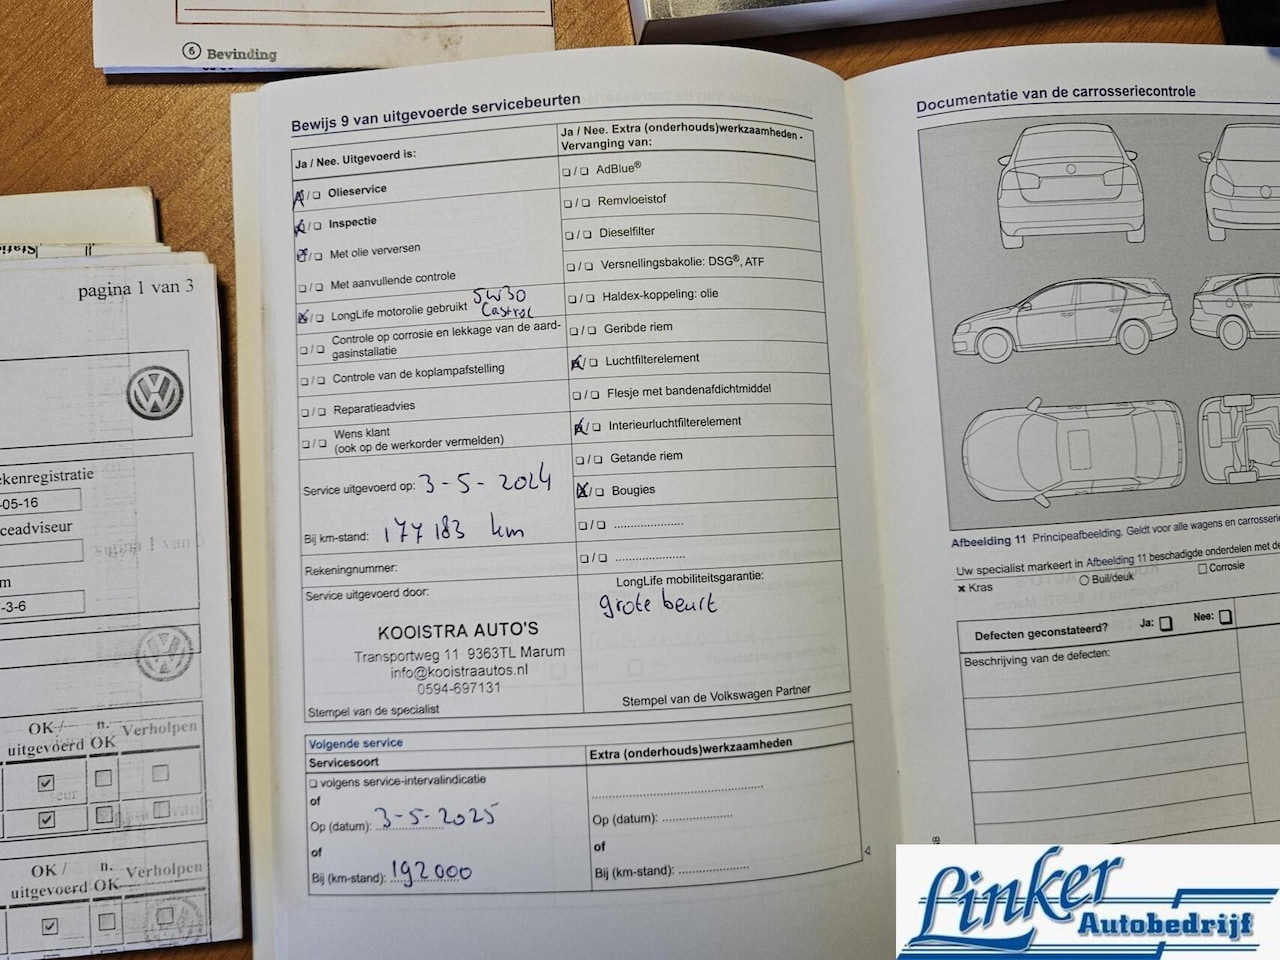 6 Bevinding
Bewijs 9 van uitgevoerde servicebeurten
Ja / Nee. Uitgevoerd is:
Olieservice
Inspectie
Met olie verversen
Met aanvullende controle
LongLife motorolie gebruikt 5w30
Castrol
Controle op corrosie en lekkage van de aard-
gasinstallatie
Controle van de koplampafstelling
Reparatieadvies
Wens klant
(ook op de werkorder vermelden)
Service uitgevoerd op: 3-5-2024
Bij km-stand: 177 183 km
Rekeningnummer:
Service uitgevoerd door:
KOOISTRA AUTO'S
Transportweg 11 9363TL Marum
info@kooistraautos.nl
0594-697131
Stempel van de specialist
Ja / Nee. Extra (onderhouds)werkzaamheden -
Vervanging van:
AdBlue®
Remvloeistof
Dieselfilter
Versnellingsbakolie: DSG®, ATF
Haldex-koppeling: olie
Geribde riem
Luchtfilterelement
Flesje met bandenafdichtmiddel
Interieurluchtfilterelement
Getande riem
Bougies
LongLife mobiliteitsgarantie:
grote beurt
Stempel van de Volkswagen Partner
Volgende service
Servicesoort
volgens service-intervalindicatie
of
Op (datum): 3-5-2025
of
Bij (km-stand): 192000
Extra (onderhouds)werkzaamheden
Op (datum):
of
Bij (km-stand):
Documentatie van de carrosseriecontrole
Afbeelding 11 Principeafbeelding. Geldt voor alle wagens en carrosserie
Uw specialist markeert in Afbeelding 11 beschadigde onderdelen met de
x Kras
Buil/deuk
Corrosie
Defecten geconstateerd? Ja: Nee:
Beschrijving van de defecten:
pagina 1 van 3
ekenregistratie
-05-16
ceadviseur
m
-3-6
OK / n. Verholpen
uitgevoerd OK
OK / n. Verholpen
uitgevoerd OK
Linker
Autobedrijf